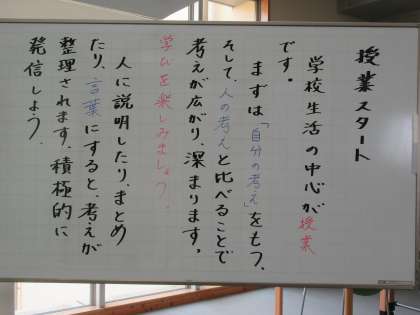 授業スタート
学校生活の中心が授業
です。
まずは「自分の考え」をもつ、
そして、人の考えと比べることで
考えが広がり、深まります。
学びを楽しみましょう。
人に説明したり、まとめ
たり、言葉にすると、考えが
整理されます。積極的に
発信しよう。